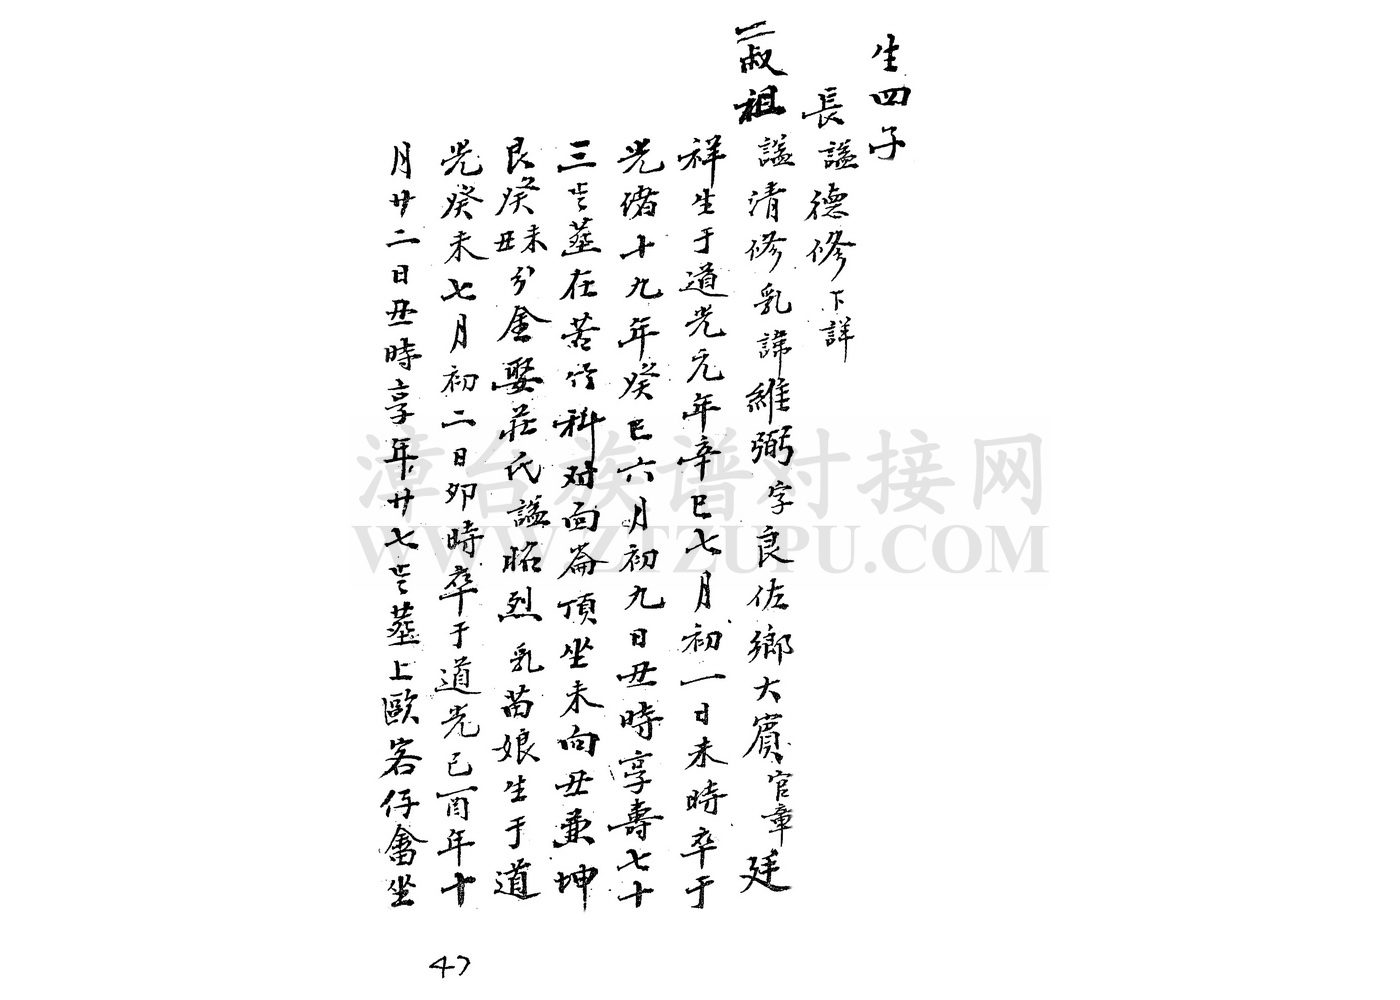 生四子
長謚德修下詳
二叔祖謚清修乳諱維弼字良佐鄉大賓官章廷
祥生于道光元年辛巳七月初一日未時卒于
光緒十九年癸巳六月初九日丑時享壽七十
三𫝀塟在苦竹科对面崙頂坐未向丑兼坤
艮癸未癸丑分金娶莊氏謚昭烈乳苗娘生于道
光癸未七月初二日卯時卒于道光己酉年十
月廿二日丑時享年廿七𫝀塟上歐客仔畬坐
47
漳台族谱对接网
WWW.ZTZUPU.COM